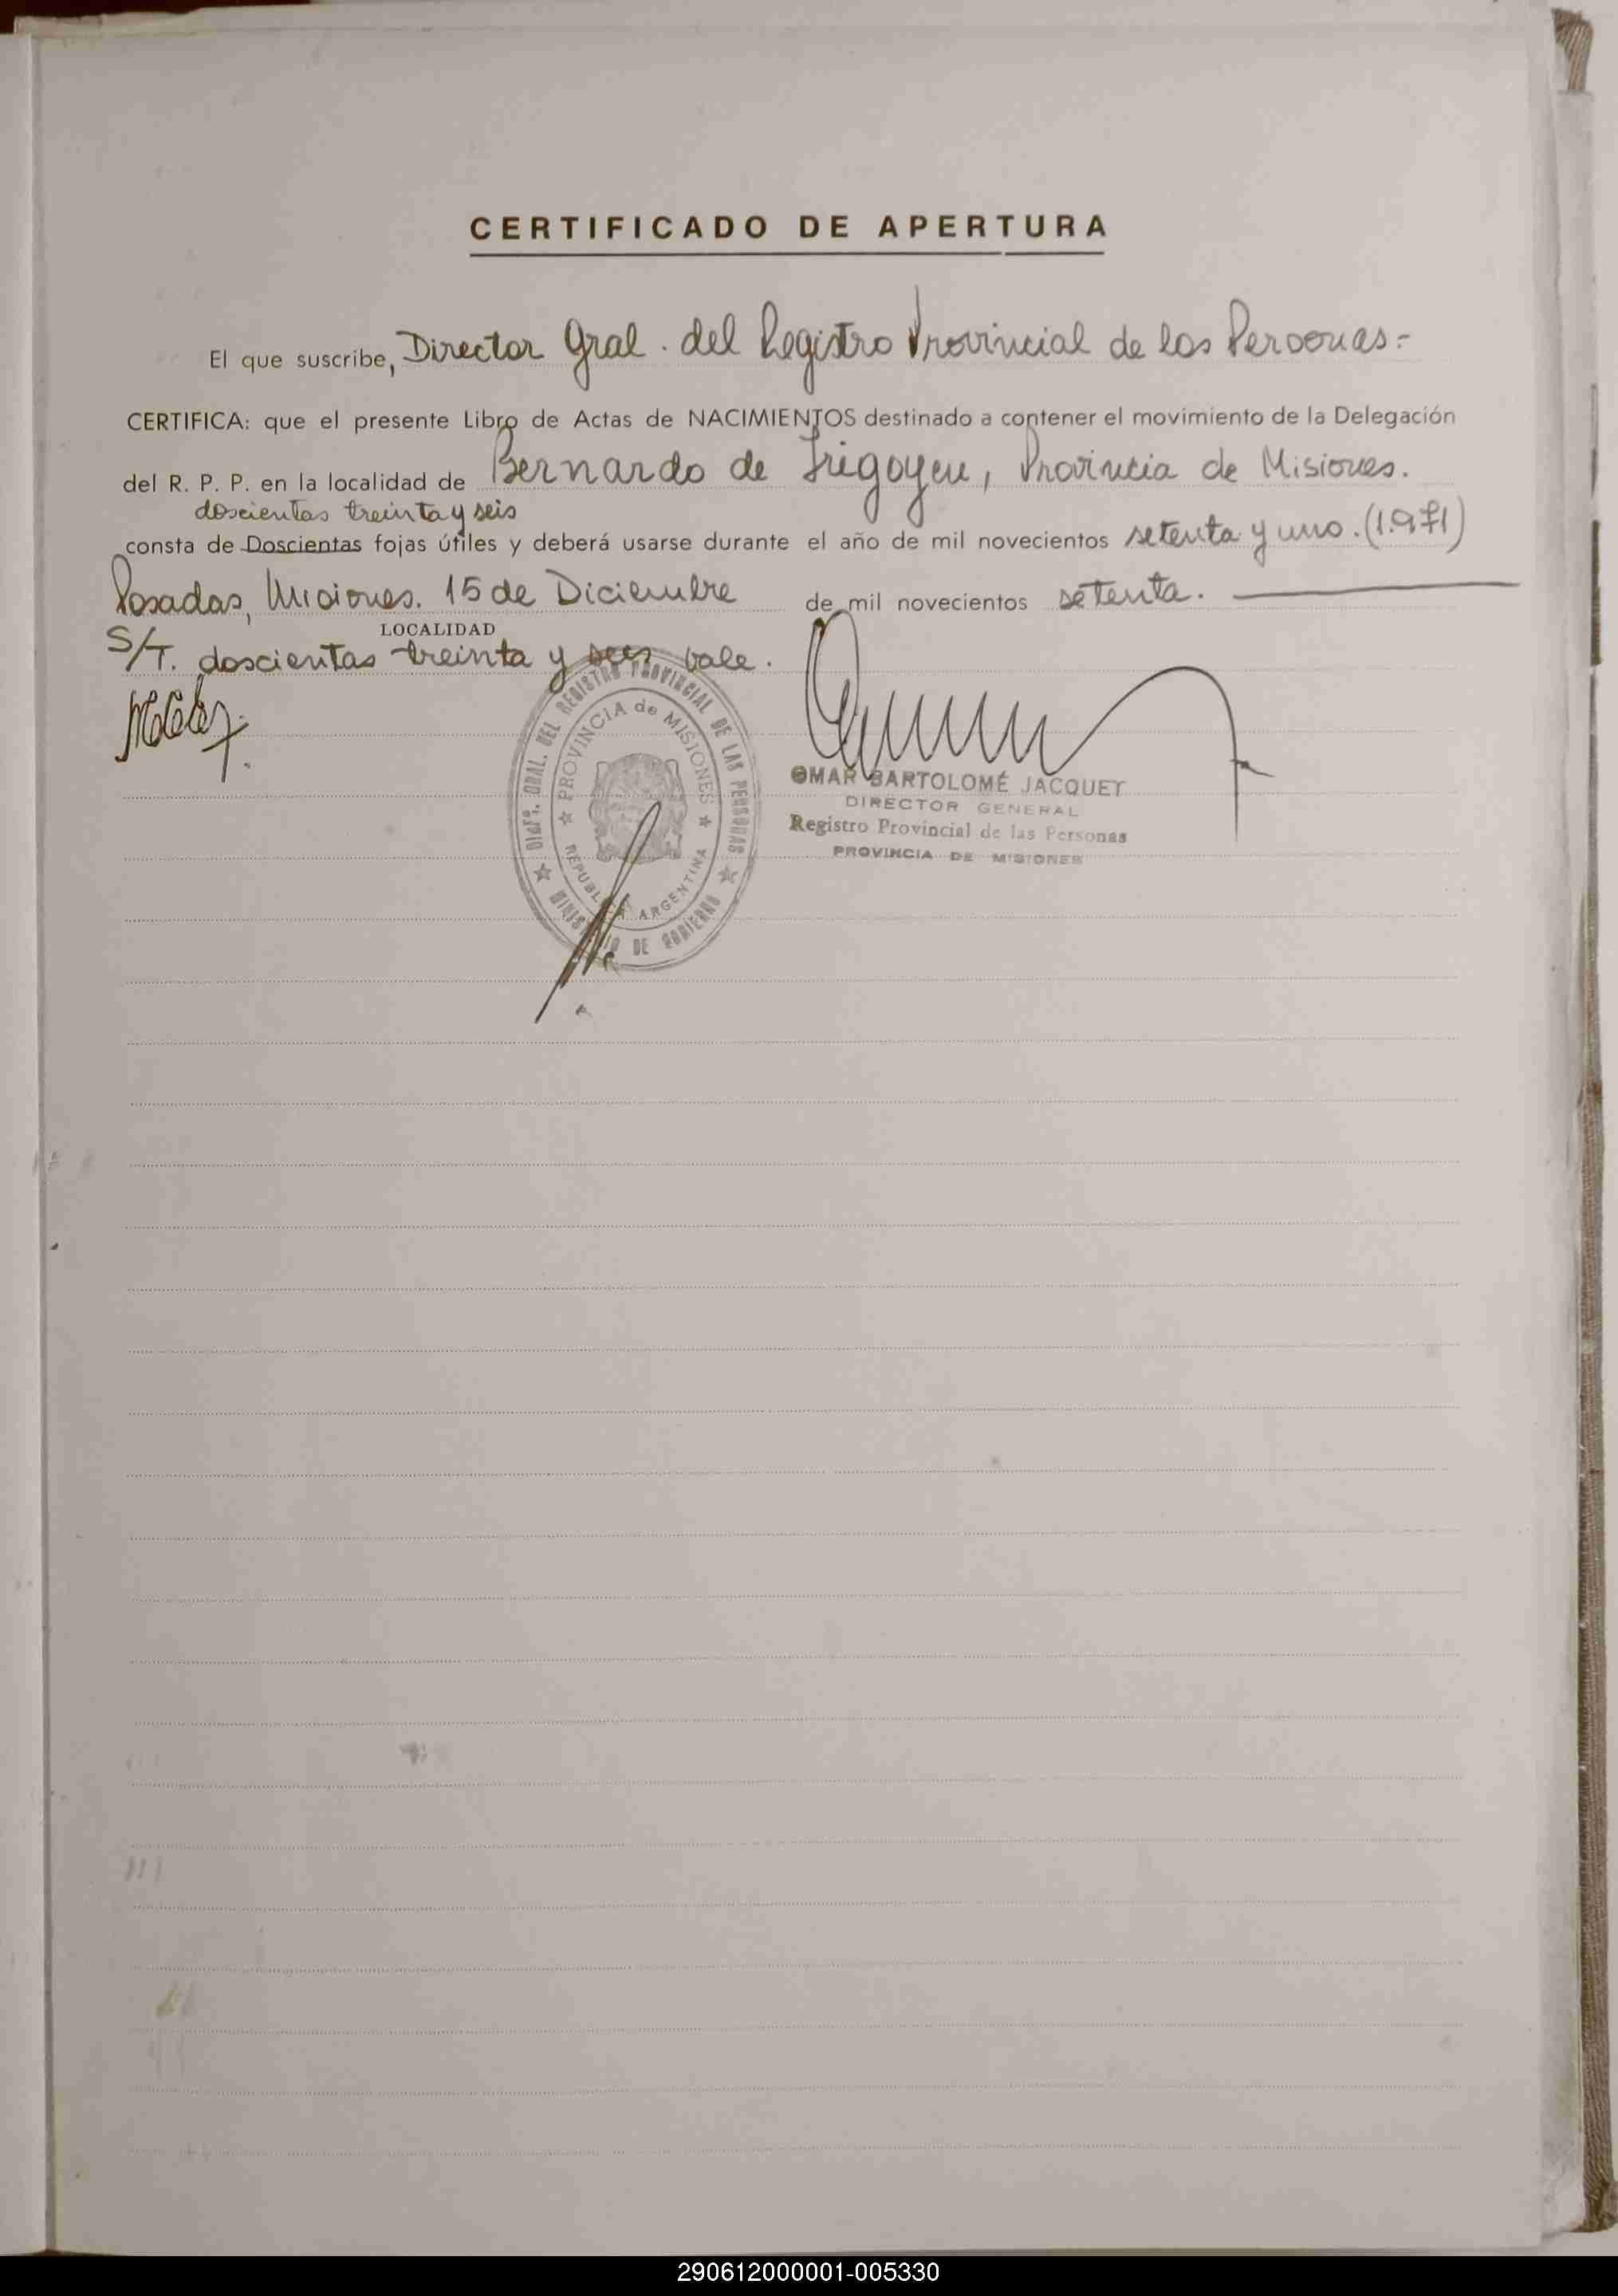 CERTIFICADO DE APERTURA
El que suscribe, Director Gral. del Registro Provincial de las Personas.=
CERTIFICA: que el presente Libro de Actas de NACIMIENTOS destinado a contener el movimiento de la Delegación
del R. P. P. en la localidad de Bernardo de Irigoyen, Provincia de Misiones.
doscientas treinta y seis
consta de Doscientas fojas útiles y deberá usarse durante el año de mil novecientos setenta y uno. (1.971)
Posadas, Misiones. 15 de Diciembre de mil novecientos setenta.
LOCALIDAD
S/T. doscientas treinta y seis vale.
DIREC. GRAL. DEL REGISTRO PROVINCIAL DE LAS PERSONAS
PROVINCIA de MISIONES
REPUBLICA ARGENTINA
MINISTERIO DE GOBIERNO
OMAR BARTOLOMÉ JACQUET
DIRECTOR GENERAL
Registro Provincial de las Personas
PROVINCIA DE MISIONES
290612000001-005330